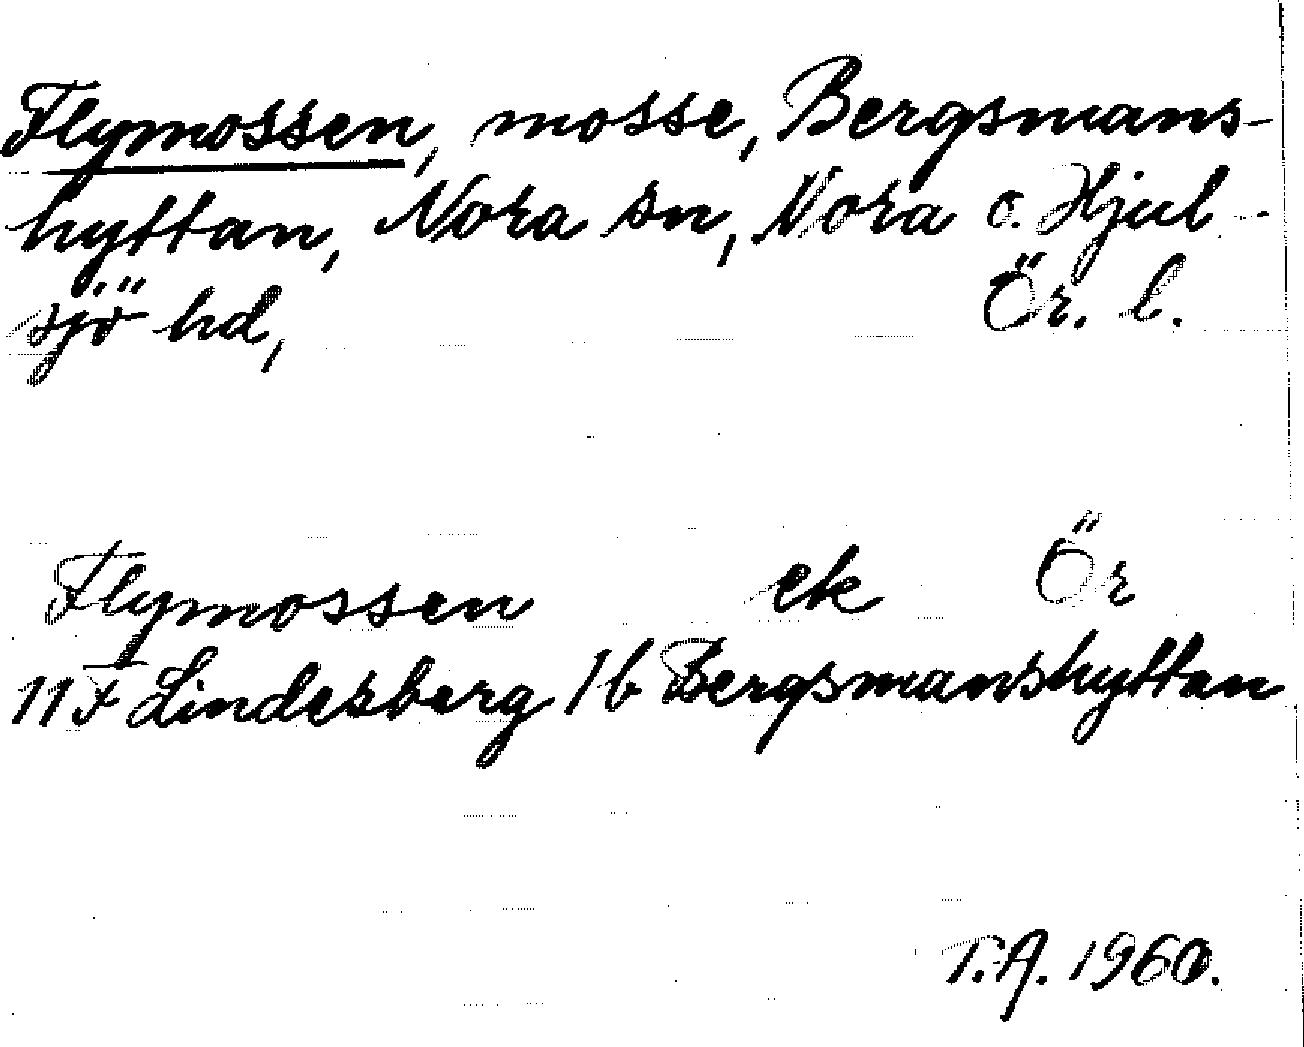 Flymossen, mosse, Bergsmans-
hyttan, Nora sn, Nora o. Hjul-
sjö hd, Ör. l.
Flymossen ek Ör
11F Lindesberg 1b Bergsmanshyttan
T.A. 1960.